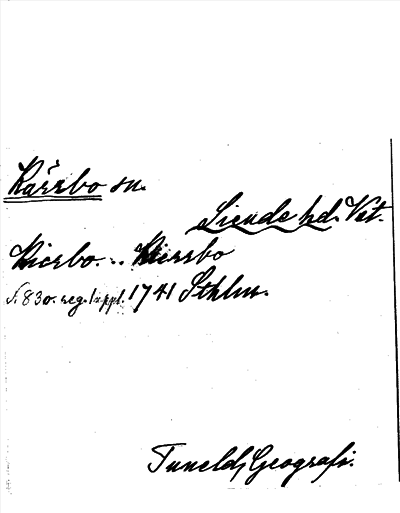 Kärrbo sn.
Siende hd. Vst.
Kierbo. .. Kierrbo
s. 830. reg. 1 uppl. 1741 Sthlm.
Tunelds Geografi.